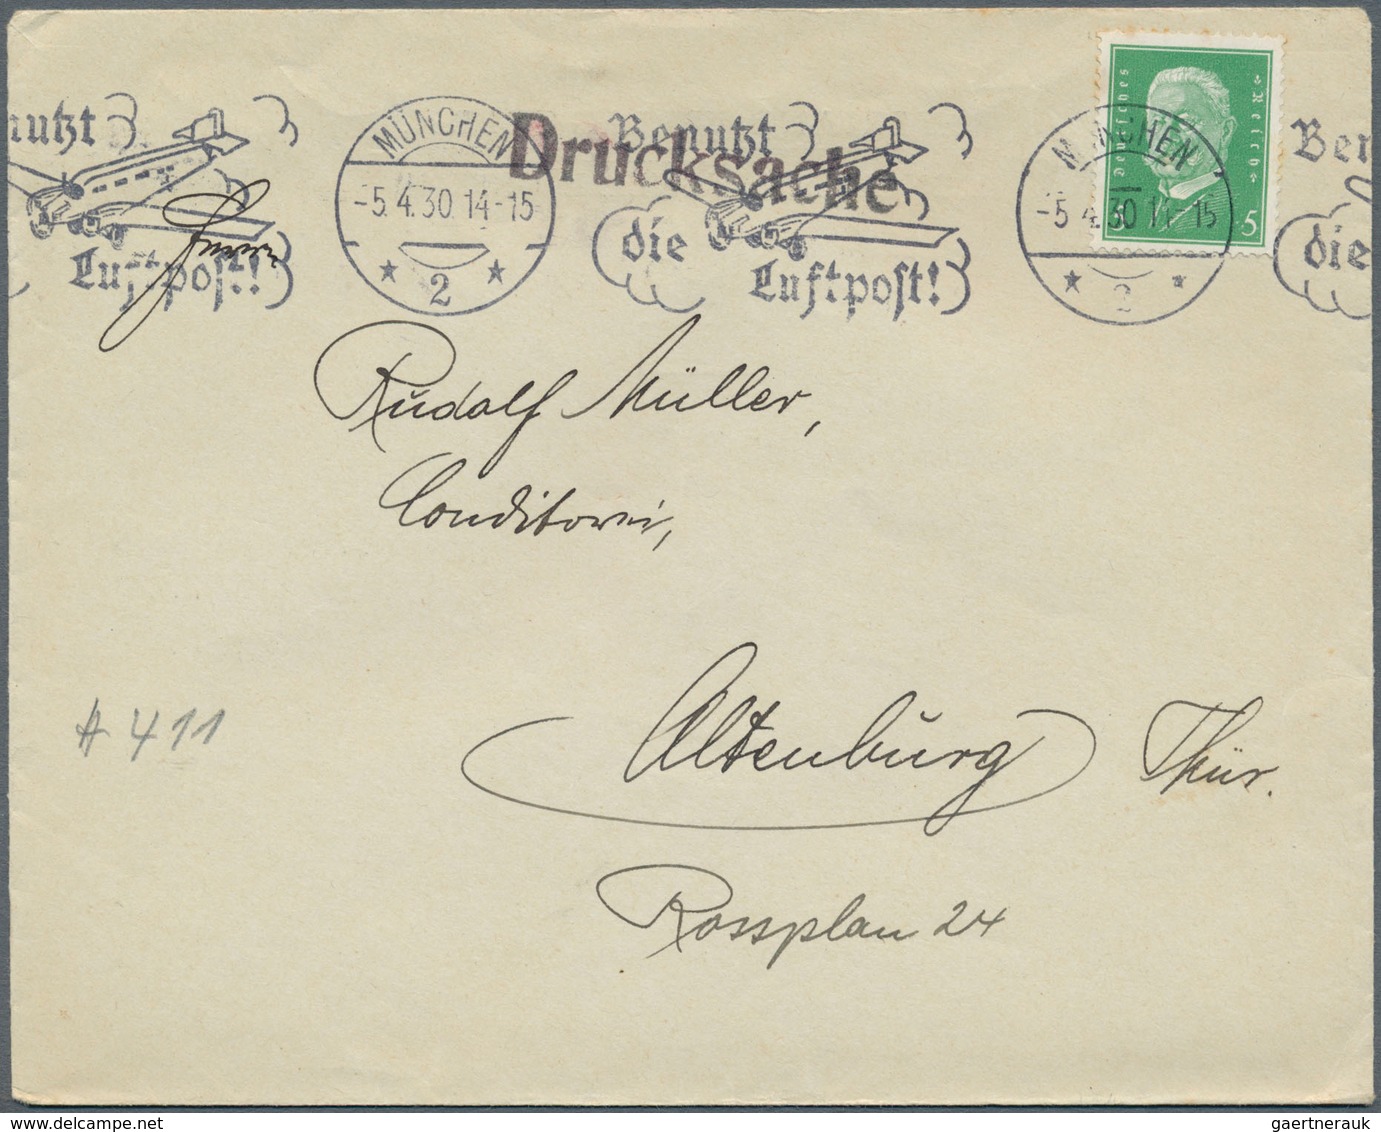 nutzt
Luftpost!
MÜNCHEN
-5.4.30.14-15
* 2 *
Drucksache
Benutzt
die
Luftpost!
Deutsches
Reich
5
MÜNCHEN
-5 4 30 14-15
* 2 *
Ben
die
Rudolf Müller,
Conditorei,
Altenburg Thür.
Rossplan 24
A 411
gaertnerauk